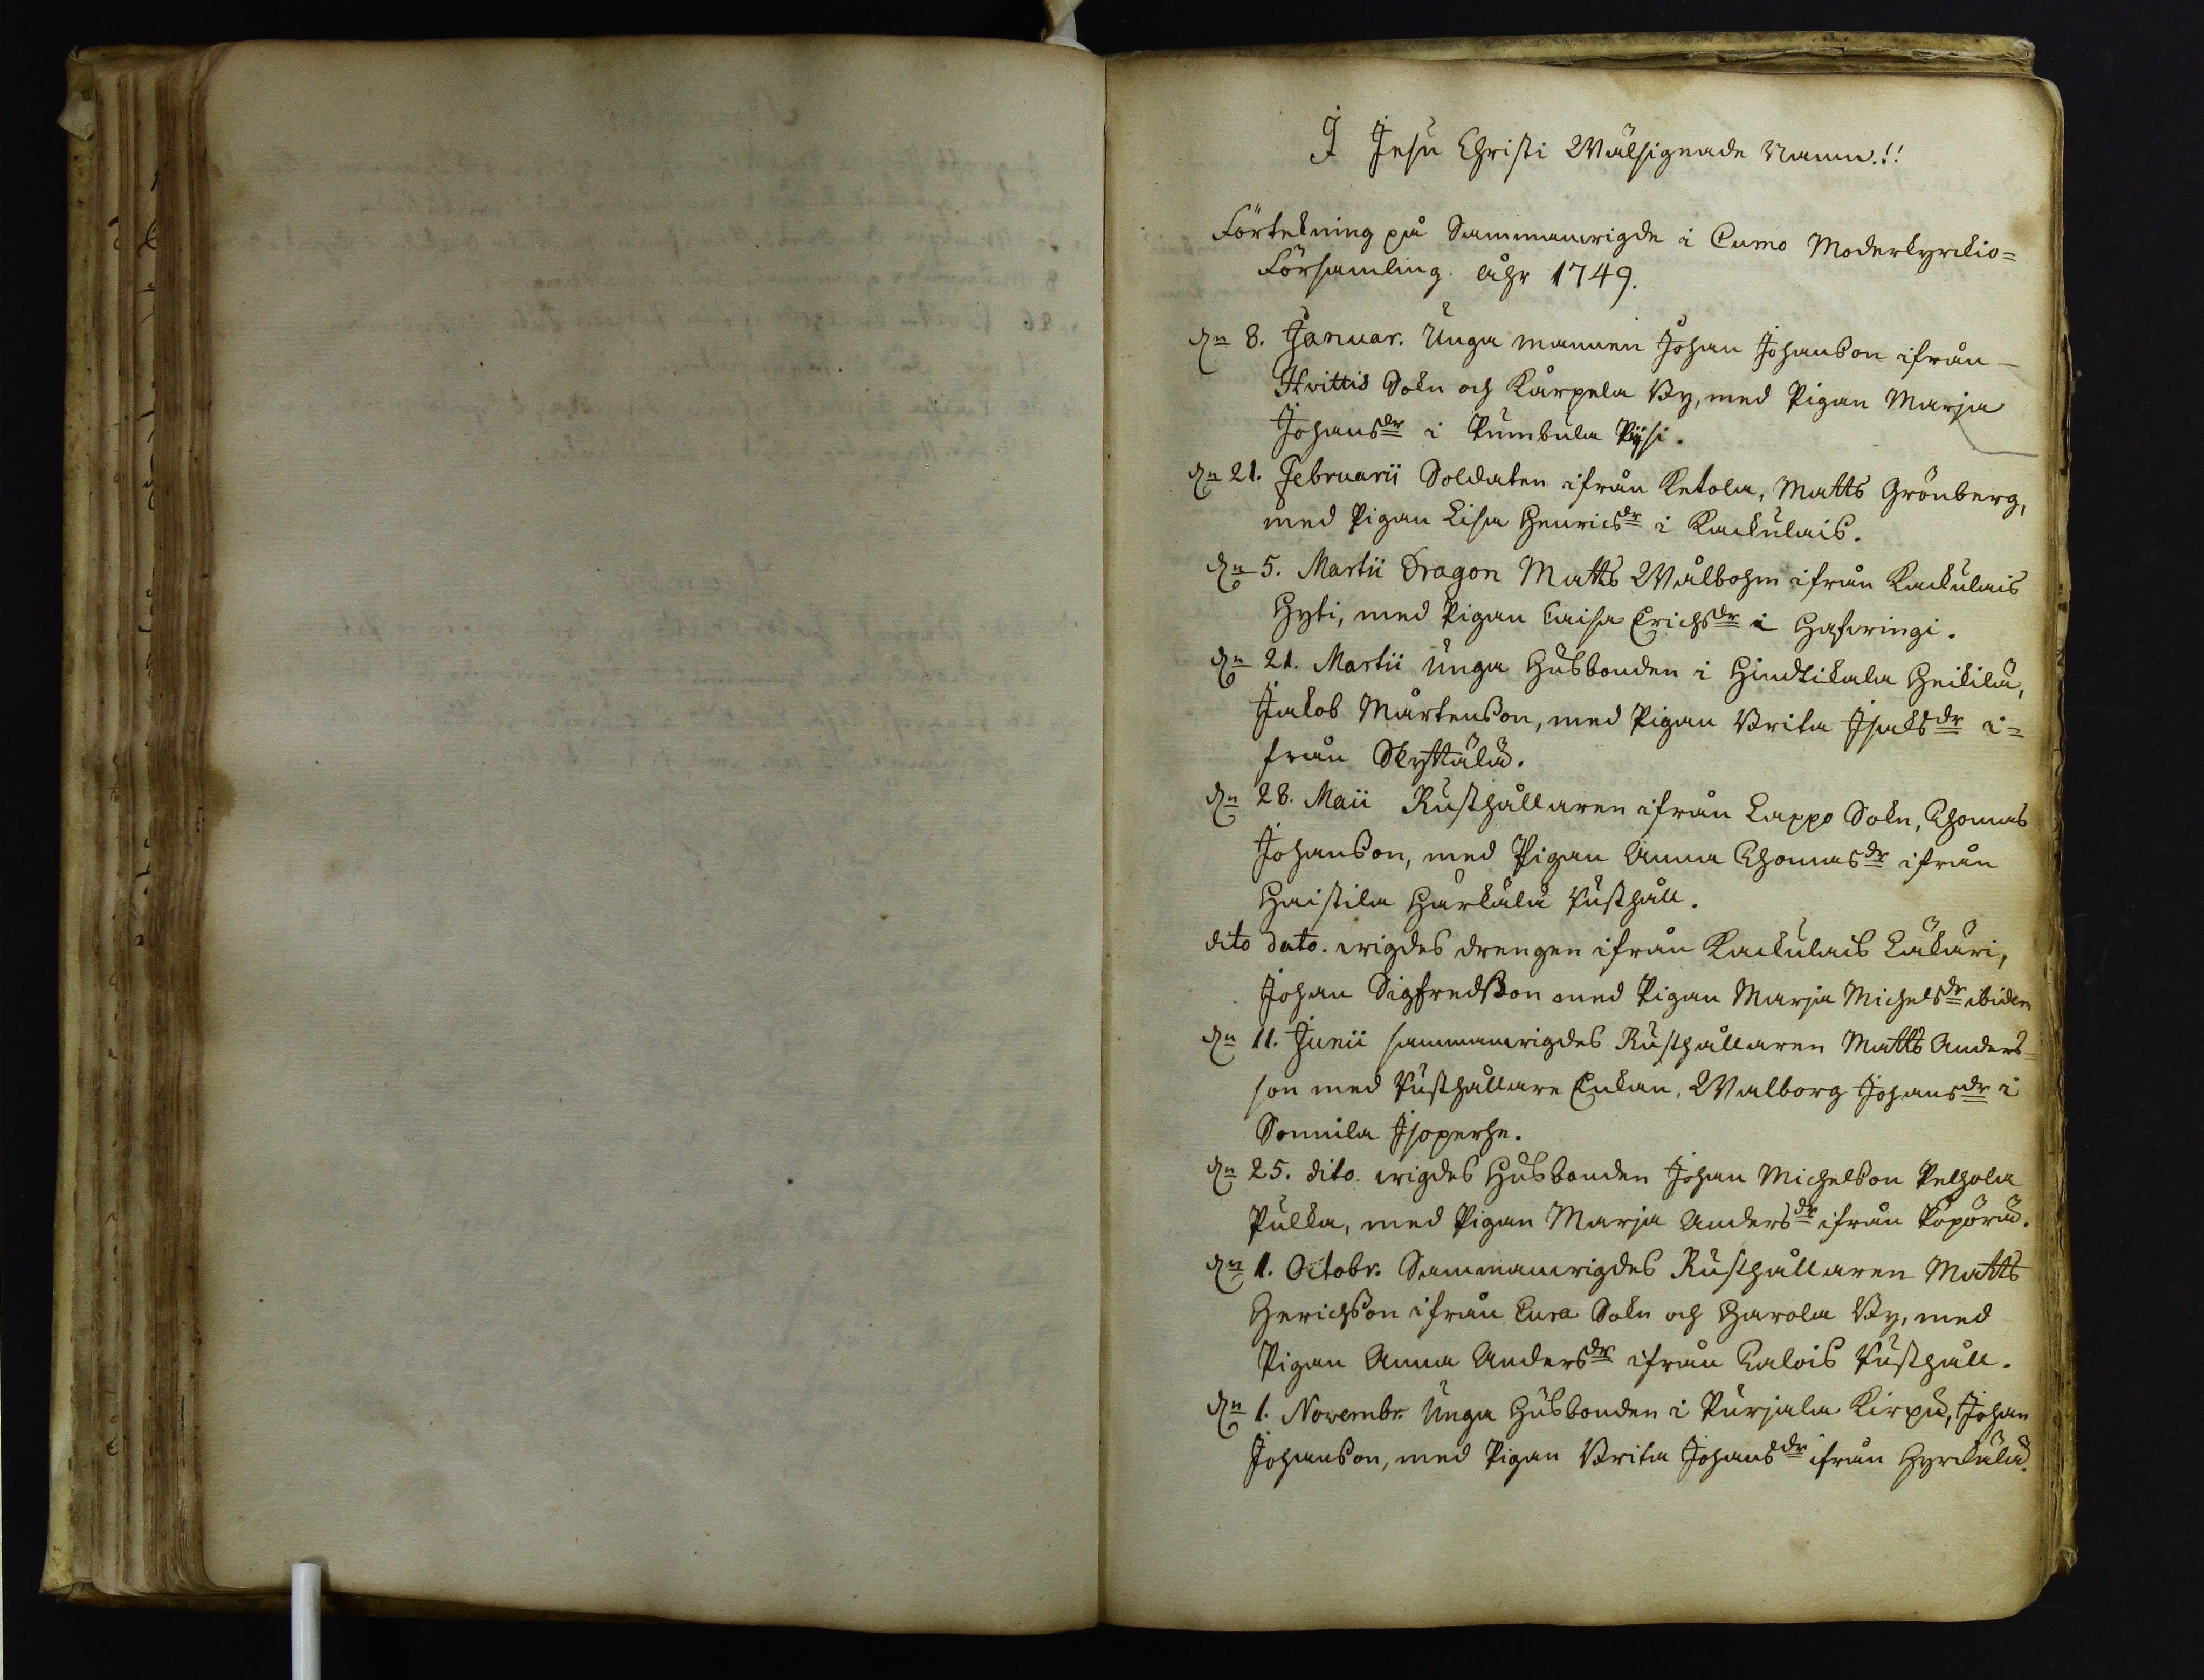 I Jesu Christi Wälsignade Namn.!!
Förtekning på Sammanwigde i Cumo Moderkyrckio=
Församling. åhr 1749.
Dn 8. Januar. Unga mannen Johan Johanson ifrån
Hvittis Sokn och Karpela By, med Pigan Marja
Johansdr i Pumbula Pijsi.
Dn 21. Februarii Soldaten ifrån Ketola, Matts Grönberg,
med Pigan Lisa Henricsdr i Kackulais.
Dn 5. Martii Dragon Matts Wålbohm ifrån Kackulais
Hyti, med Pigan Caisa Erichsdr i Hafwringi.
Dn 21. Martii Unga Husbonden i Hindtikala Heikilä,
Jakob Mårtenson, med Pigan Brita Isaksdr i=
från Skyttälä.
Dn 28. Maii Rusthållaren ifrån Lappo Sokn, Thomas
Johanson, med Pigan Anna Thomasdr ifrån
Haistila Härkälä Rusthåll.
dito dato. wigdes drengen ifrån Kackulais Läkäri,
Johan Sigfredsson med Pigan Marja Michelsdr ibidem
Dn 11. Junii sammanwigdes Rusthållaren Matts Anders=
son med Rusthållare Enkan, Walborg Johansdr i
Sonnila Isoperhe.
Dn 25. dito. wigdes Husbonden Johan Michelson Pelhola
Pukka, med Pigan Marja Andersdr ifrån Köpörä.
Dn 1. Octobr. Sammanwigdes Rusthållaren Matts
Herichson ifrån Eura Sokn och Harola By, med
Pigan Anna Andersdr ifrån Talois Rusthåll.
Dn 1. Novembr. Unga Husbonden i Purjala Kirpu, Johan
Johanson, med Pigan Brita Johansdr ifrån Hyrckälä.